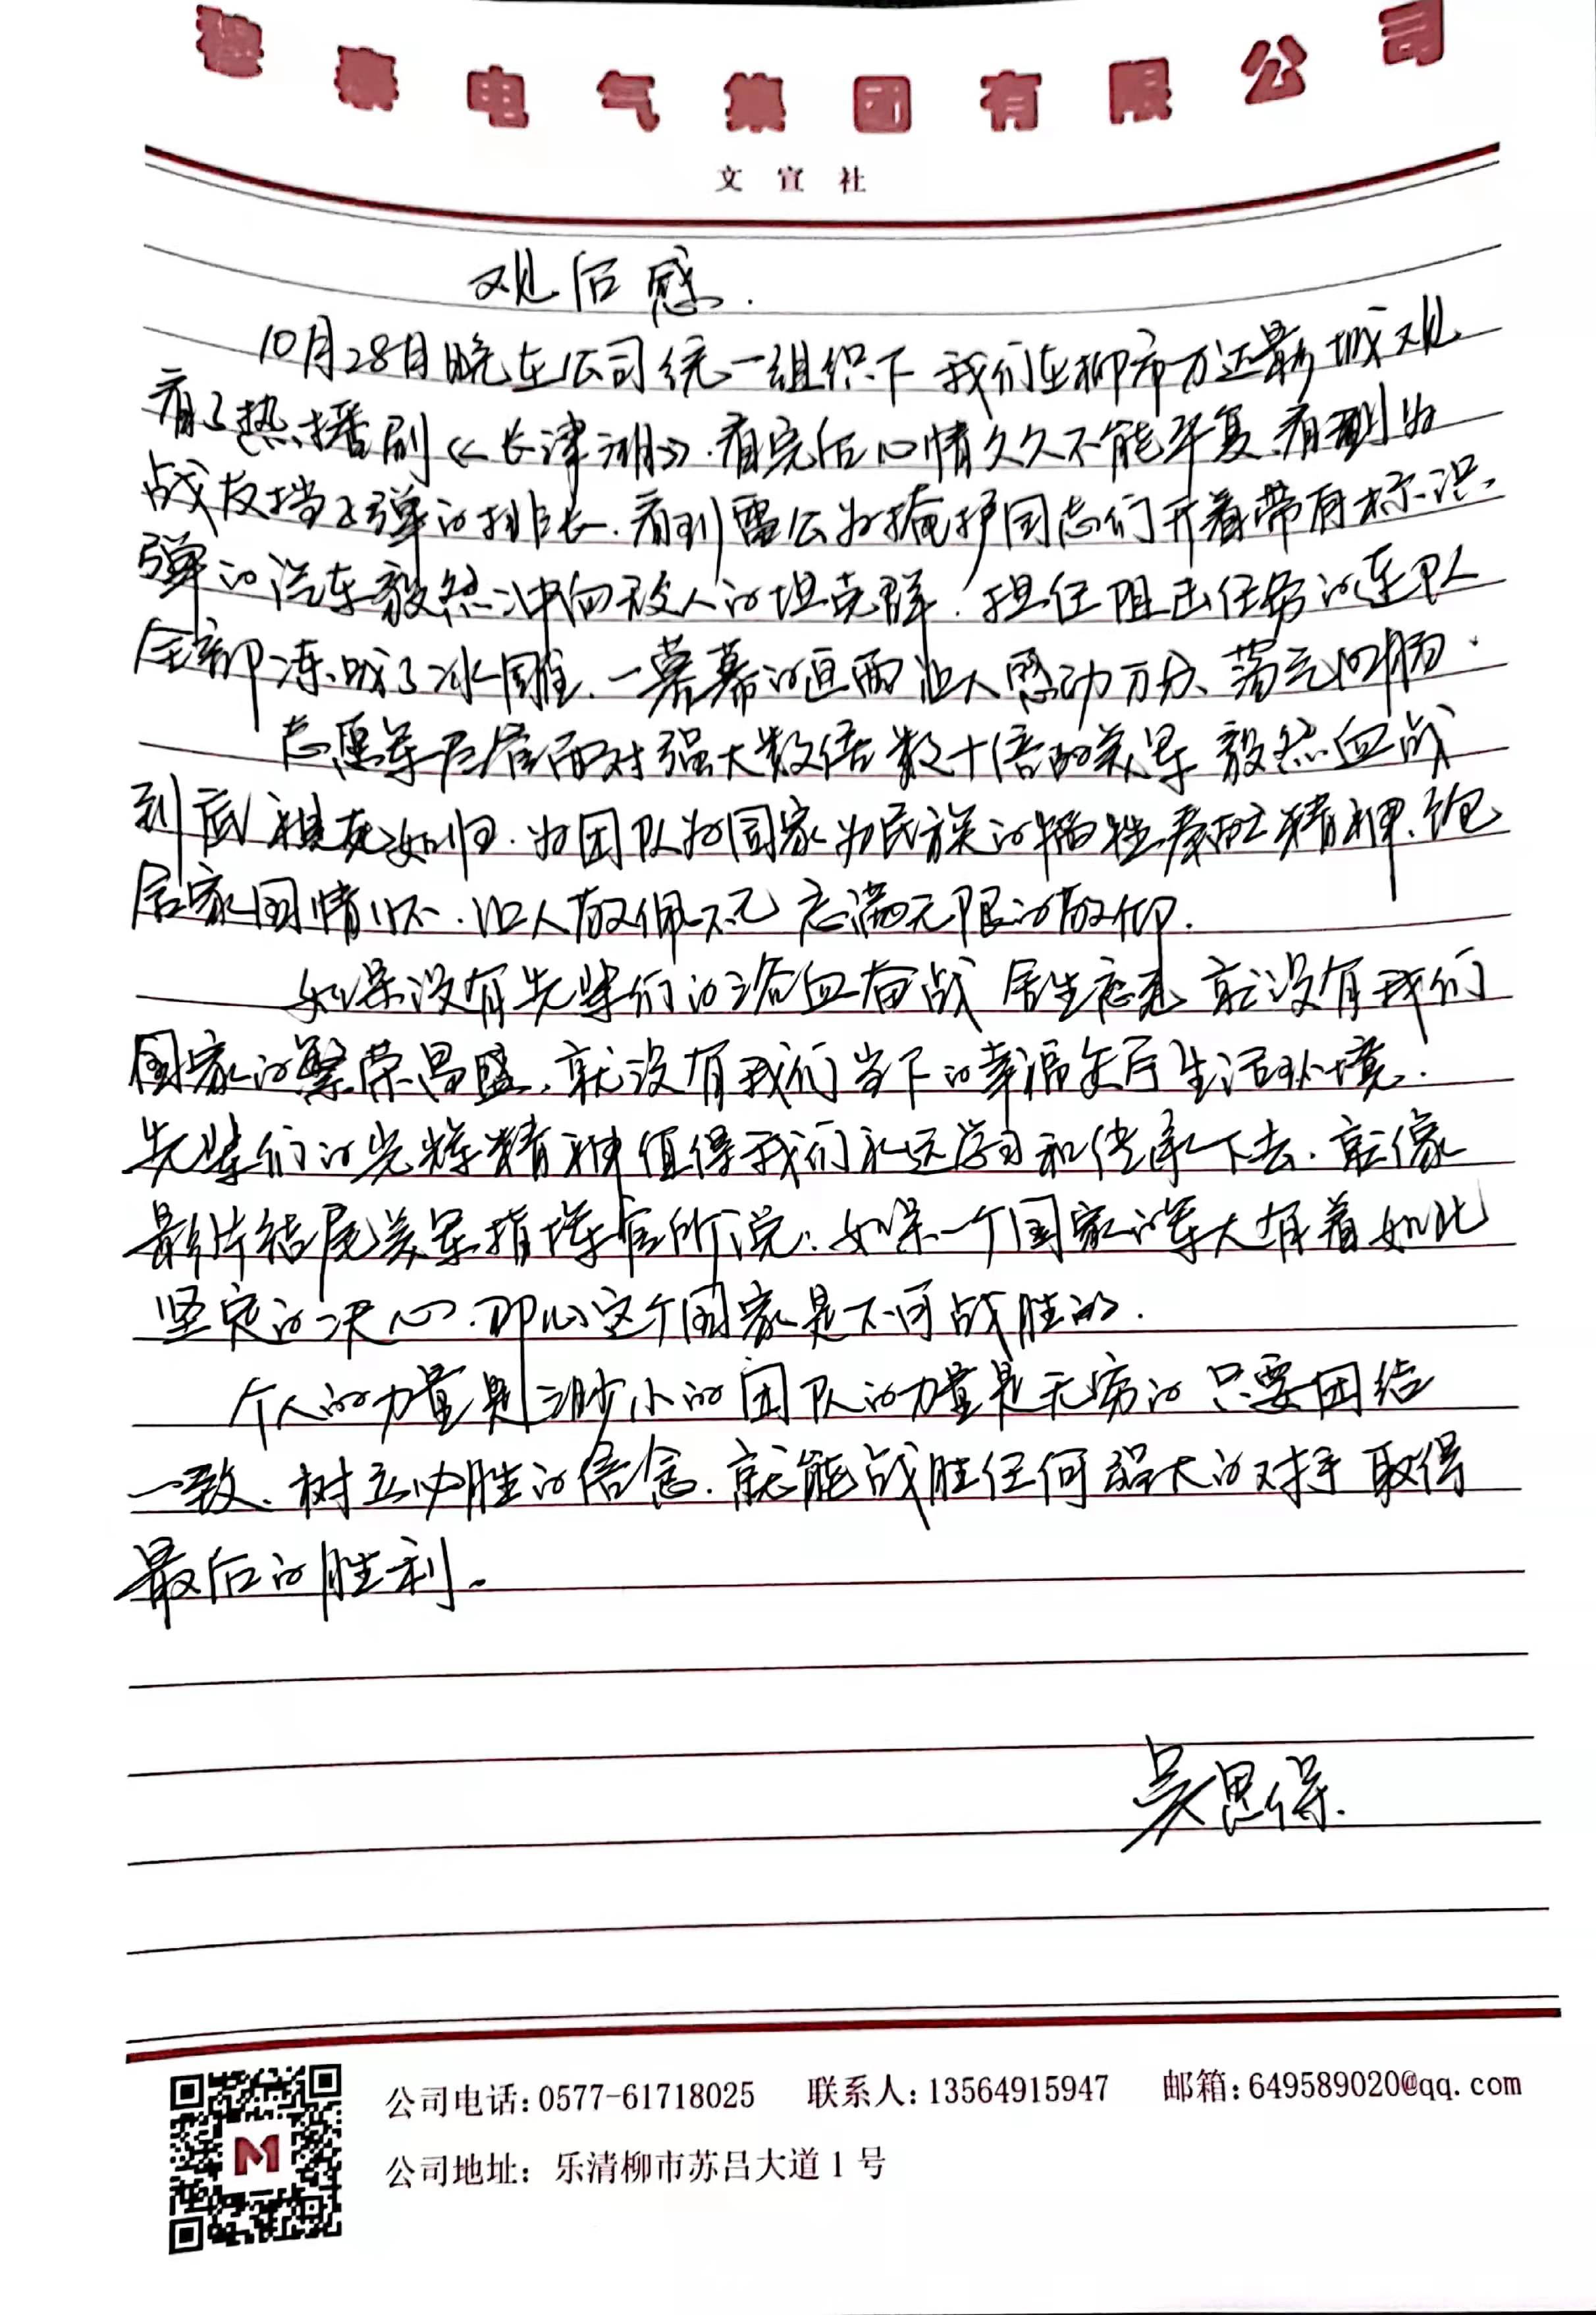 德泰电气集团有限公司
文宣社
观后感.
10月28日晚在公司统一组织下 我们在柳市万达影城观
看了热播剧《长津湖》.看完后心情久久不能平复、看到为
战友挡子弹的排长.看到雷公为掩护同志们开着带有标识
弹的汽车毅然冲向敌人的坦克群.担任阻击任务的连队
全部冻成了冰雕.一幕幕的画面让人感动万分、荡气回肠.
志愿军官面对强大数倍数十倍的美军 毅然血战
到底 视死如归.为团队为国家为民族的牺牲奉献精神.
家国情怀.让人敬佩不已 充满无限的敬仰.
如果没有先辈们的浴血奋战 舍生忘死 就没有我们
国家的繁荣昌盛.就没有我们当下的幸福安居生活环境.
先辈们的光辉精神值得我们永远学习和传承下去.就像
影片结尾美军指挥官所说:如果一个国家的军人有着如此
坚定的决心.那么这个国家是不可战胜的.
个人的力量是渺小的 团队的力量是无穷的 只要团结
一致、树立必胜的信念.就能战胜任何强大的对手 取得
最后的胜利。
吴思得.
公司电话:0577-61718025 联系人:13564915947 邮箱:649589020@qq.com
公司地址: 乐清柳市苏吕大道1号